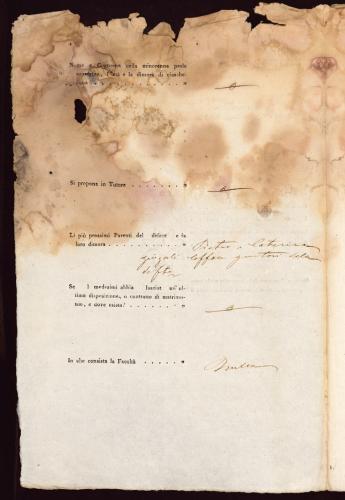 Nome e Cognome della minorenne prole
superstite, l'età e la dimora di ciasche-
duno
Si propone in Tutore
Li più prossimi Parenti del defont e la
loro dimora Pietro e Catterina
giugali genitori della
defta
Se l medesimi abbia lasciat un' ul-
tima disposizione, o contratto di matrimo-
nio, e dove esista?
In che consista la Facoltà Nulla